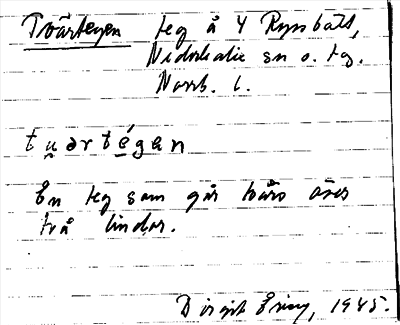 Tvärtegen teg å 4 Rynbäck,
Nederkalix sn o. tg.
Norrb. l.
tu̯ärtégen
En teg som går tvärs över
två lindor.
Birgit 1945.